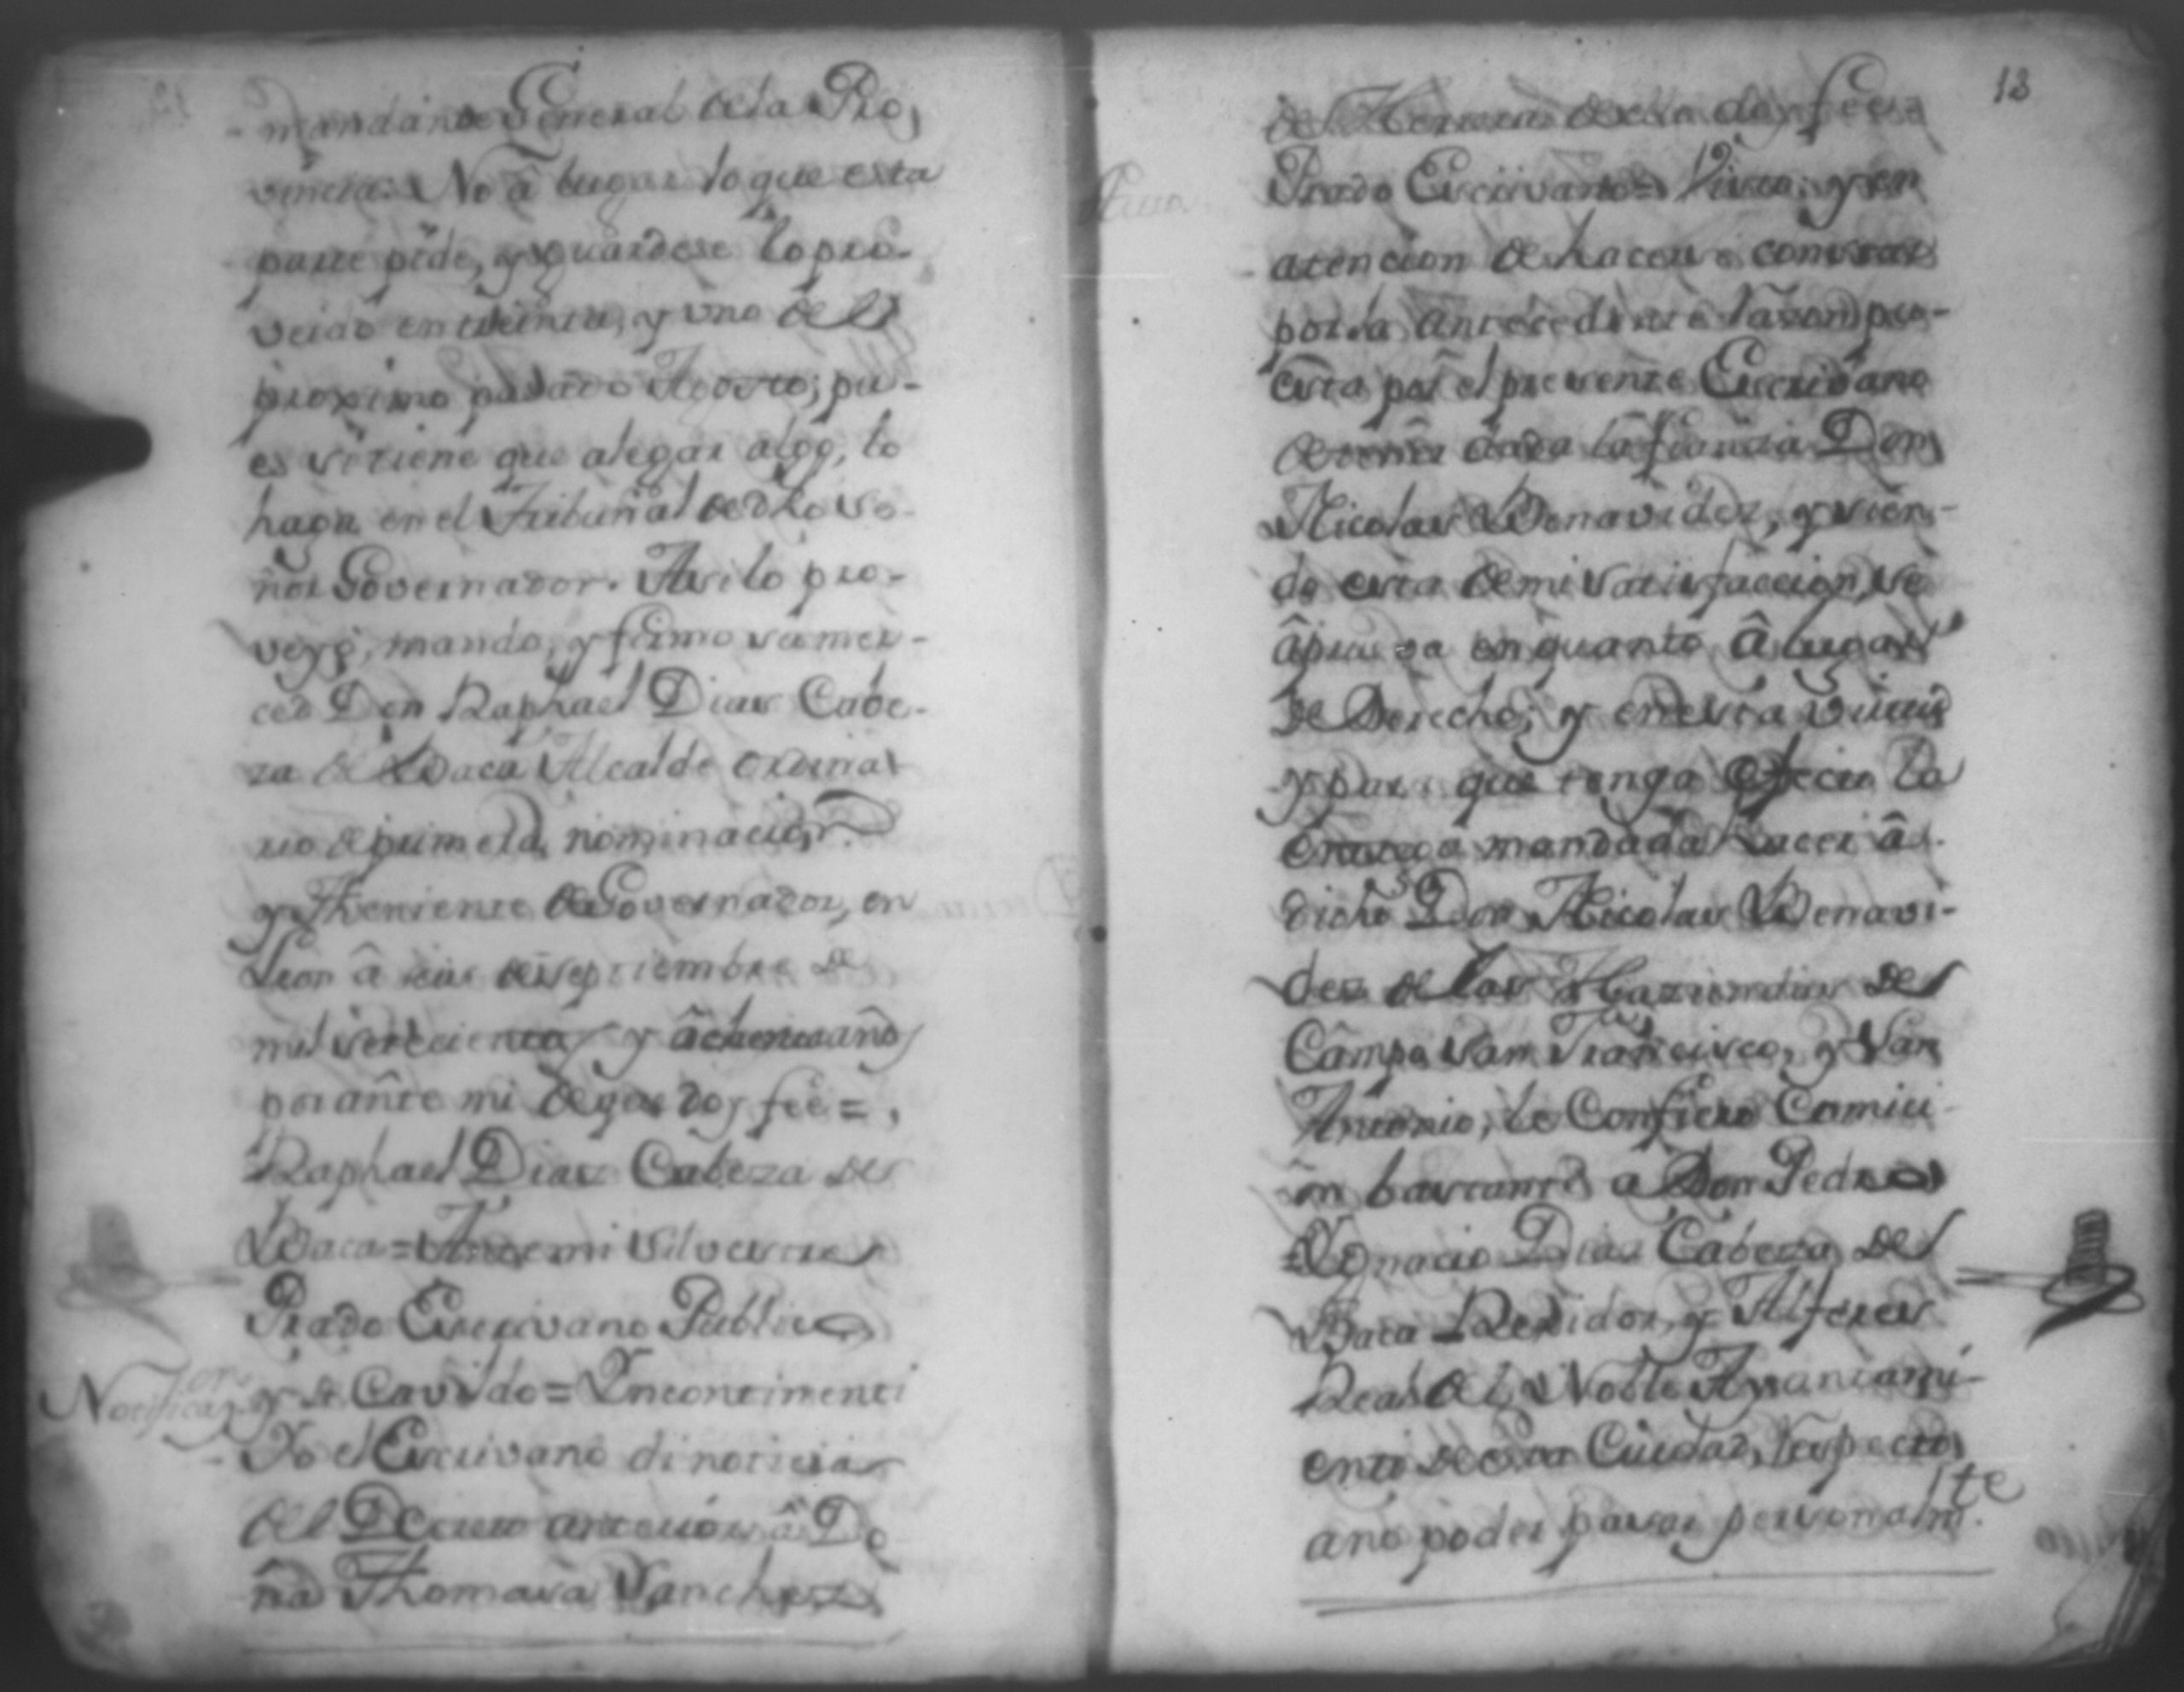 mandante General dela Pro,
vincia: No â lugar lo que esta
parte pide, y guardese lo pro-
veido en treinta, y uno del
proximo pasado Agosto; pu-
es si tiene que alegar algo, lo
haga en el Tribunal de dho se-
ñor Governador. Asi lo pro-
veyo, mando, y firmo su mer-
ced Don Raphael Dias Cabe-
za de Baca Alcalde ordina
rio de primera nominación
y Theniente de Governador, en
Leon â seis de septiembre de
mil setecientos y ôchenta años
por ante mi de que doy feè =
Raphael Dias Cabeza de
Baca = Ante mi Silvestre
Prado Escrivano Publico
Notificaz.on
y de Cavildo = Yncontinenti
Yo el Escrivano di noticia
del Decreto anterior â Do
ña Thomasa Sanchez
13
Auto.
de Herrera de ello doy feèe =
Prado Escrivano = Visto: y en
atencion de hacerse constar
por la antecedente razon pu-
esta por el presente Escrivano
de tener dada la fianza Don
Nicolas Benavides, y sien-
do esta de mi satisfaccion, se
âprueva en quanto â lugar
de Derecho; y en esta virtud
y para que tenga efecto la
entrega mandada hacer â
dicho Don Nicolas Benavi-
des de las Haziendas de
Câmpo San Francisco, y San
Antonio, le Confiero Comici
ôn bastante a Don Pedro
Ygnacio Dias Cabeza de
Baca Regidor, y Alferes
Real del Noble Ayuntami-
ento de esta Ciudad, respecto
ano poder pasar personalm.te